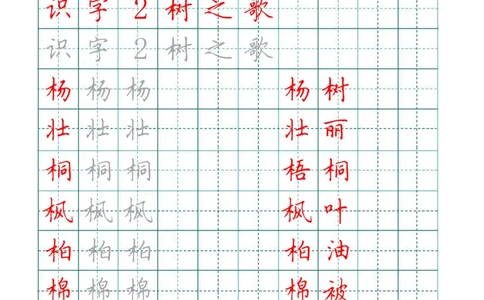 识字2树之歌
识字2树之歌
杨杨杨 杨树
壮壮壮 壮丽
桐桐桐 梧桐
枫枫枫 枫叶
柏柏柏 柏油
棉棉棉 棉被